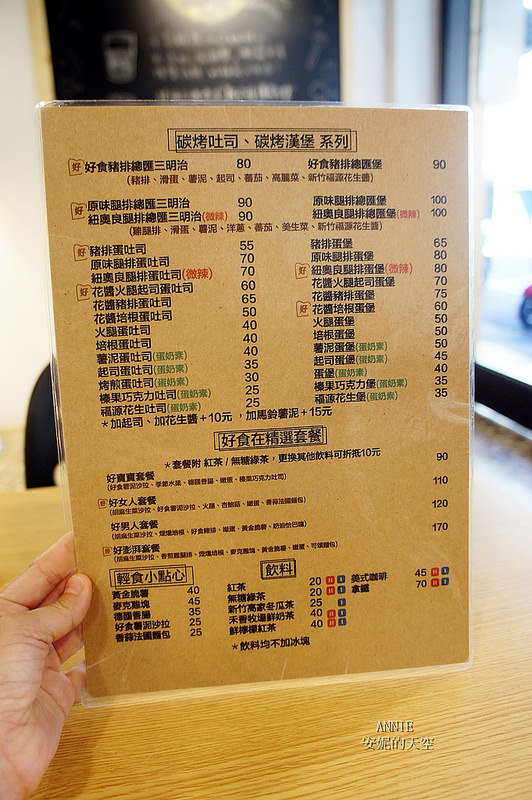 碳烤吐司、碳烤漢堡 系列
好 好食豬排總匯三明治 80 好食豬排總匯堡 90
(豬排、滑蛋、薯泥、起司、蕃茄、高麗菜、新竹福源花生醬)
好 原味腿排總匯三明治 90 原味腿排總匯堡 100
紐奧良腿排總匯三明治(微辣) 90 紐奧良腿排總匯堡(微辣) 100
(雞腿排、滑蛋、薯泥、洋蔥、蕃茄、美生菜、新竹福源花生醬)
好 豬排蛋吐司 55 豬排蛋堡 65
原味腿排蛋吐司 70 原味腿排蛋堡 80
紐奧良腿排蛋吐司(微辣) 70 好 紐奧良腿排蛋堡(微辣) 80
好 花醬火腿起司蛋吐司 60 花醬火腿起司蛋堡 70
花醬豬排蛋吐司 65 花醬豬排蛋堡 75
花醬培根蛋吐司 50 好 花醬培根蛋堡 60
火腿蛋吐司 40 火腿蛋堡 50
培根蛋吐司 40 培根蛋堡 50
薯泥蛋吐司(蛋奶素) 40 薯泥蛋堡(蛋奶素) 50
起司蛋吐司(蛋奶素) 35 起司蛋堡(蛋奶素) 45
烤煎蛋吐司(蛋奶素) 30 蛋堡(蛋奶素) 40
榛果巧克力吐司(蛋奶素) 25 榛果巧克力堡(蛋奶素) 35
福源花生吐司(蛋奶素) 25 福源花生堡(蛋奶素) 35
*加起司、加花生醬+10元 ,加馬鈴薯泥+15元
好食在精選套餐
*套餐附 紅茶/無糖綠茶,更換其他飲料可折抵10元
好寶寶套餐 90
(好食薯泥沙拉、季節水果、德國香腸、嫩蛋、榛果巧克力吐司)
好 好女人套餐 110
(胡麻生菜沙拉、好食薯泥沙拉、火腿、杏鮑菇、嫩蛋、香蒜法國麵包)
好男人套餐 120
好 好澎湃套餐 170
輕食小點心
黃金脆薯 40
麥克雞塊 45
德國香腸 35
好食薯泥沙拉 25
香蒜法國麵包 25
飲料
紅茶 20 H I
無糖綠茶 20 H I
新竹高家冬瓜茶 25 I
禾香牧場鮮奶茶 40 H I
鮮檸檬紅茶 40 I
美式咖啡 45 H I
拿鐵 70 H I
*飲料均不加冰塊
ANNIE
安妮的天空